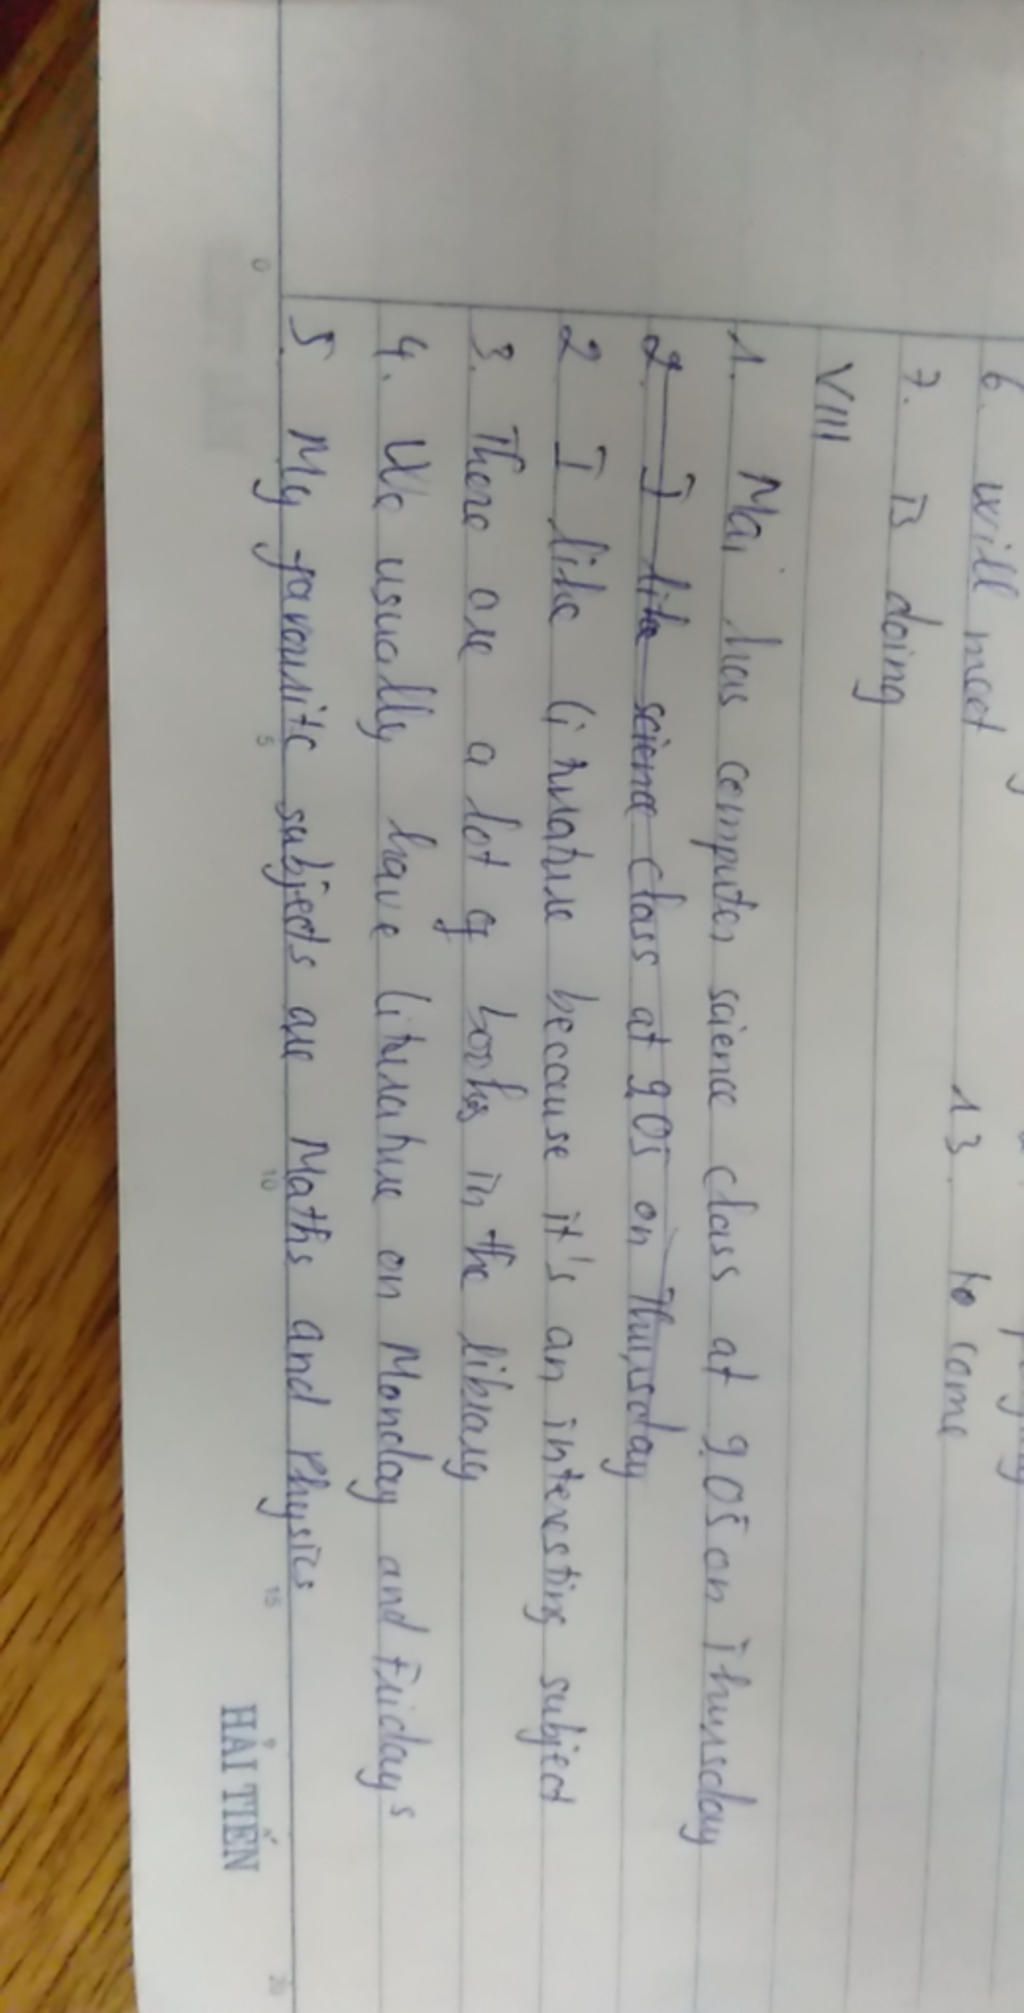 6. will meet 13. to come
7. is doing
VIII
1. Mai has computer science class at 9.05 on Thursday
2. I like science class at 9.05 on Thursday
2 I like literature because it's an interesting subject
3. There are a lot of books in the library
4. We usually have literature on Monday and Fridays
5. My favourite subjects are Maths and Physics
0 5 10 15 20
HẢI TIẾN